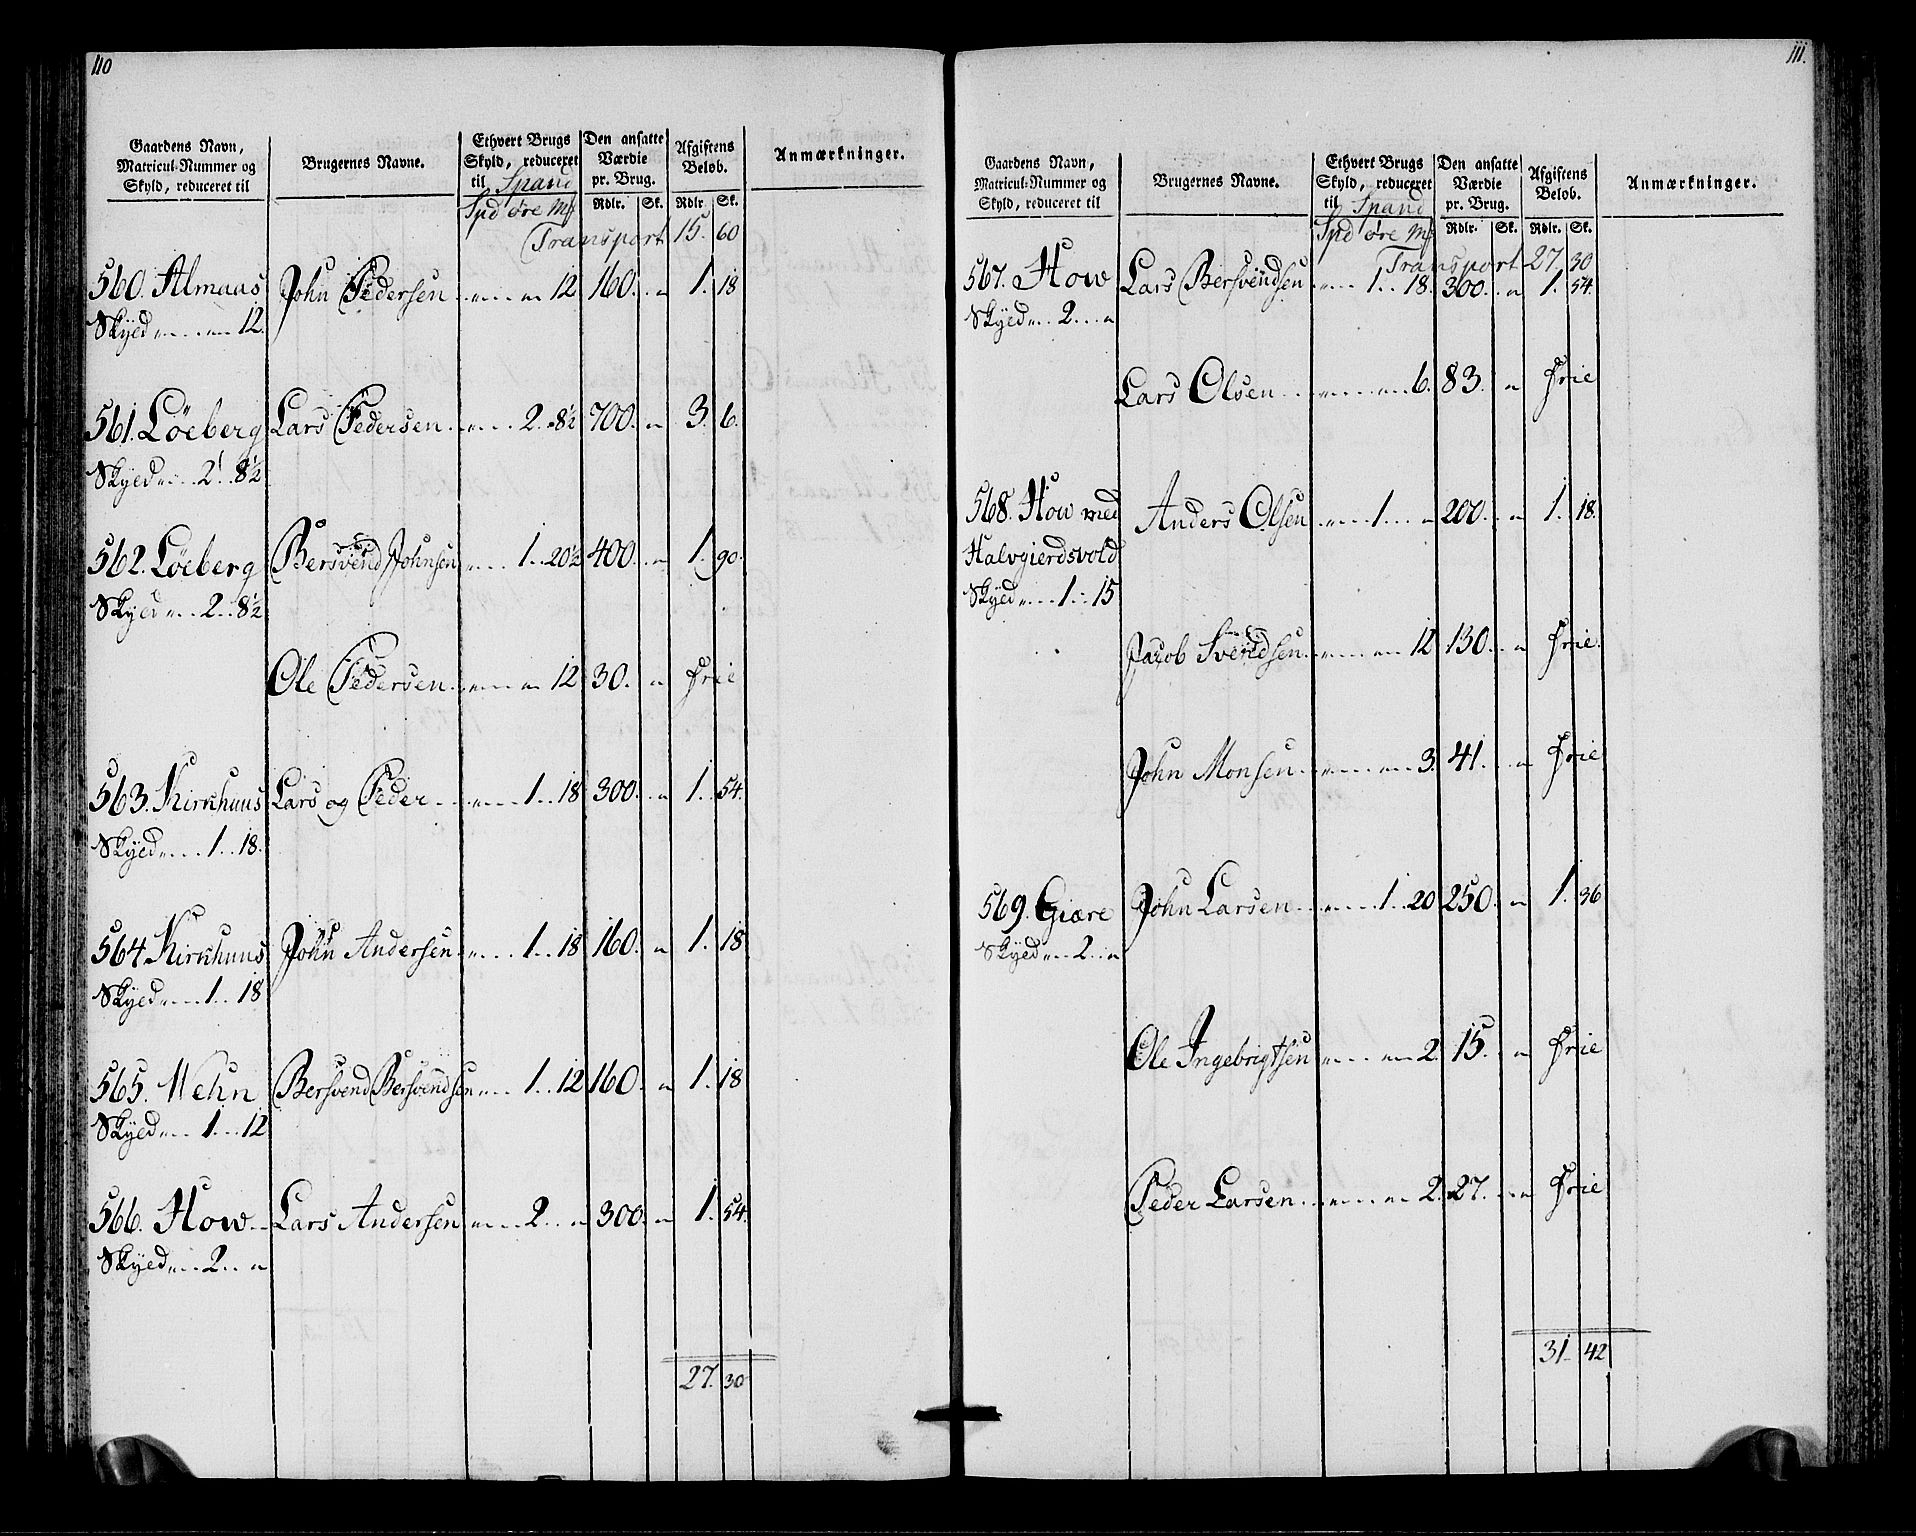 110
Gaardens Navn, Matricul-Nummer og Skyld, reduceret til | Brugernes Navne. | Ethvert Brugs Skyld, reduceret til Spand | Den ansatte Værdie pr. Brug. | Afgiftens Beløb. | Anmærkninger.
Spd øre Mf | Rdlr. | Sk. | Rdlr. | Sk.
Transport 15. 60
560. Almaas John Pedersen 12 160. " 1. 18
Skyed 12.
561. Löeberg Lars Pedersen 2. 8½ 700. " 3. 6.
Skyed 2. 8½
562. Löeberg Bersvend Johnsen 1. 20½ 400. " 1. 90.
Skyed 2. 8½
Ole Pedersen 12 30. " Frie
563. Kirkhuus Lars og Peder 1. 18 300. " 1. 54.
Skyed 1. 18.
564. Kirkhuus John Andersen 1. 18 160. " 1. 18
Skyed 1. 18
565. Wehn Bersvend Bersvendsen 1. 12 160. " 1. 18
Skyed 1. 12
566. How Lars Andersen 2. " 300. " 1. 54.
Skyed 2. "
27. 30
111.
Gaardens Navn, Matricul-Nummer og Skyld, reduceret til | Brugernes Navne. | Ethvert Brugs Skyld, reduceret til Spand | Den ansatte Værdie pr. Brug. | Afgiftens Beløb. | Anmærkninger.
Spd øre Mf | Rdlr. | Sk. | Rdlr. | Sk.
Transport 27. 30
567. How Lars Bersvendsen 1. 18. 300. " 1. 54.
Skyed 2. "
Lars Olsen 6. 83. " Frie
568. How med Anders Olsen 1. " 200. " 1. 18.
Halvgierdsvold
Skyed 1. 15
Jacob Svendsen 12 130. " Frie.
John Monsen 3. 41. " Frie
569. Giære John Larsen 1. 20 250. " 1. 36
Skyed 2. "
Ole Ingebrigtsen 2 15. " Frie
Peder Larsen 2. 27. " Frie
31 42